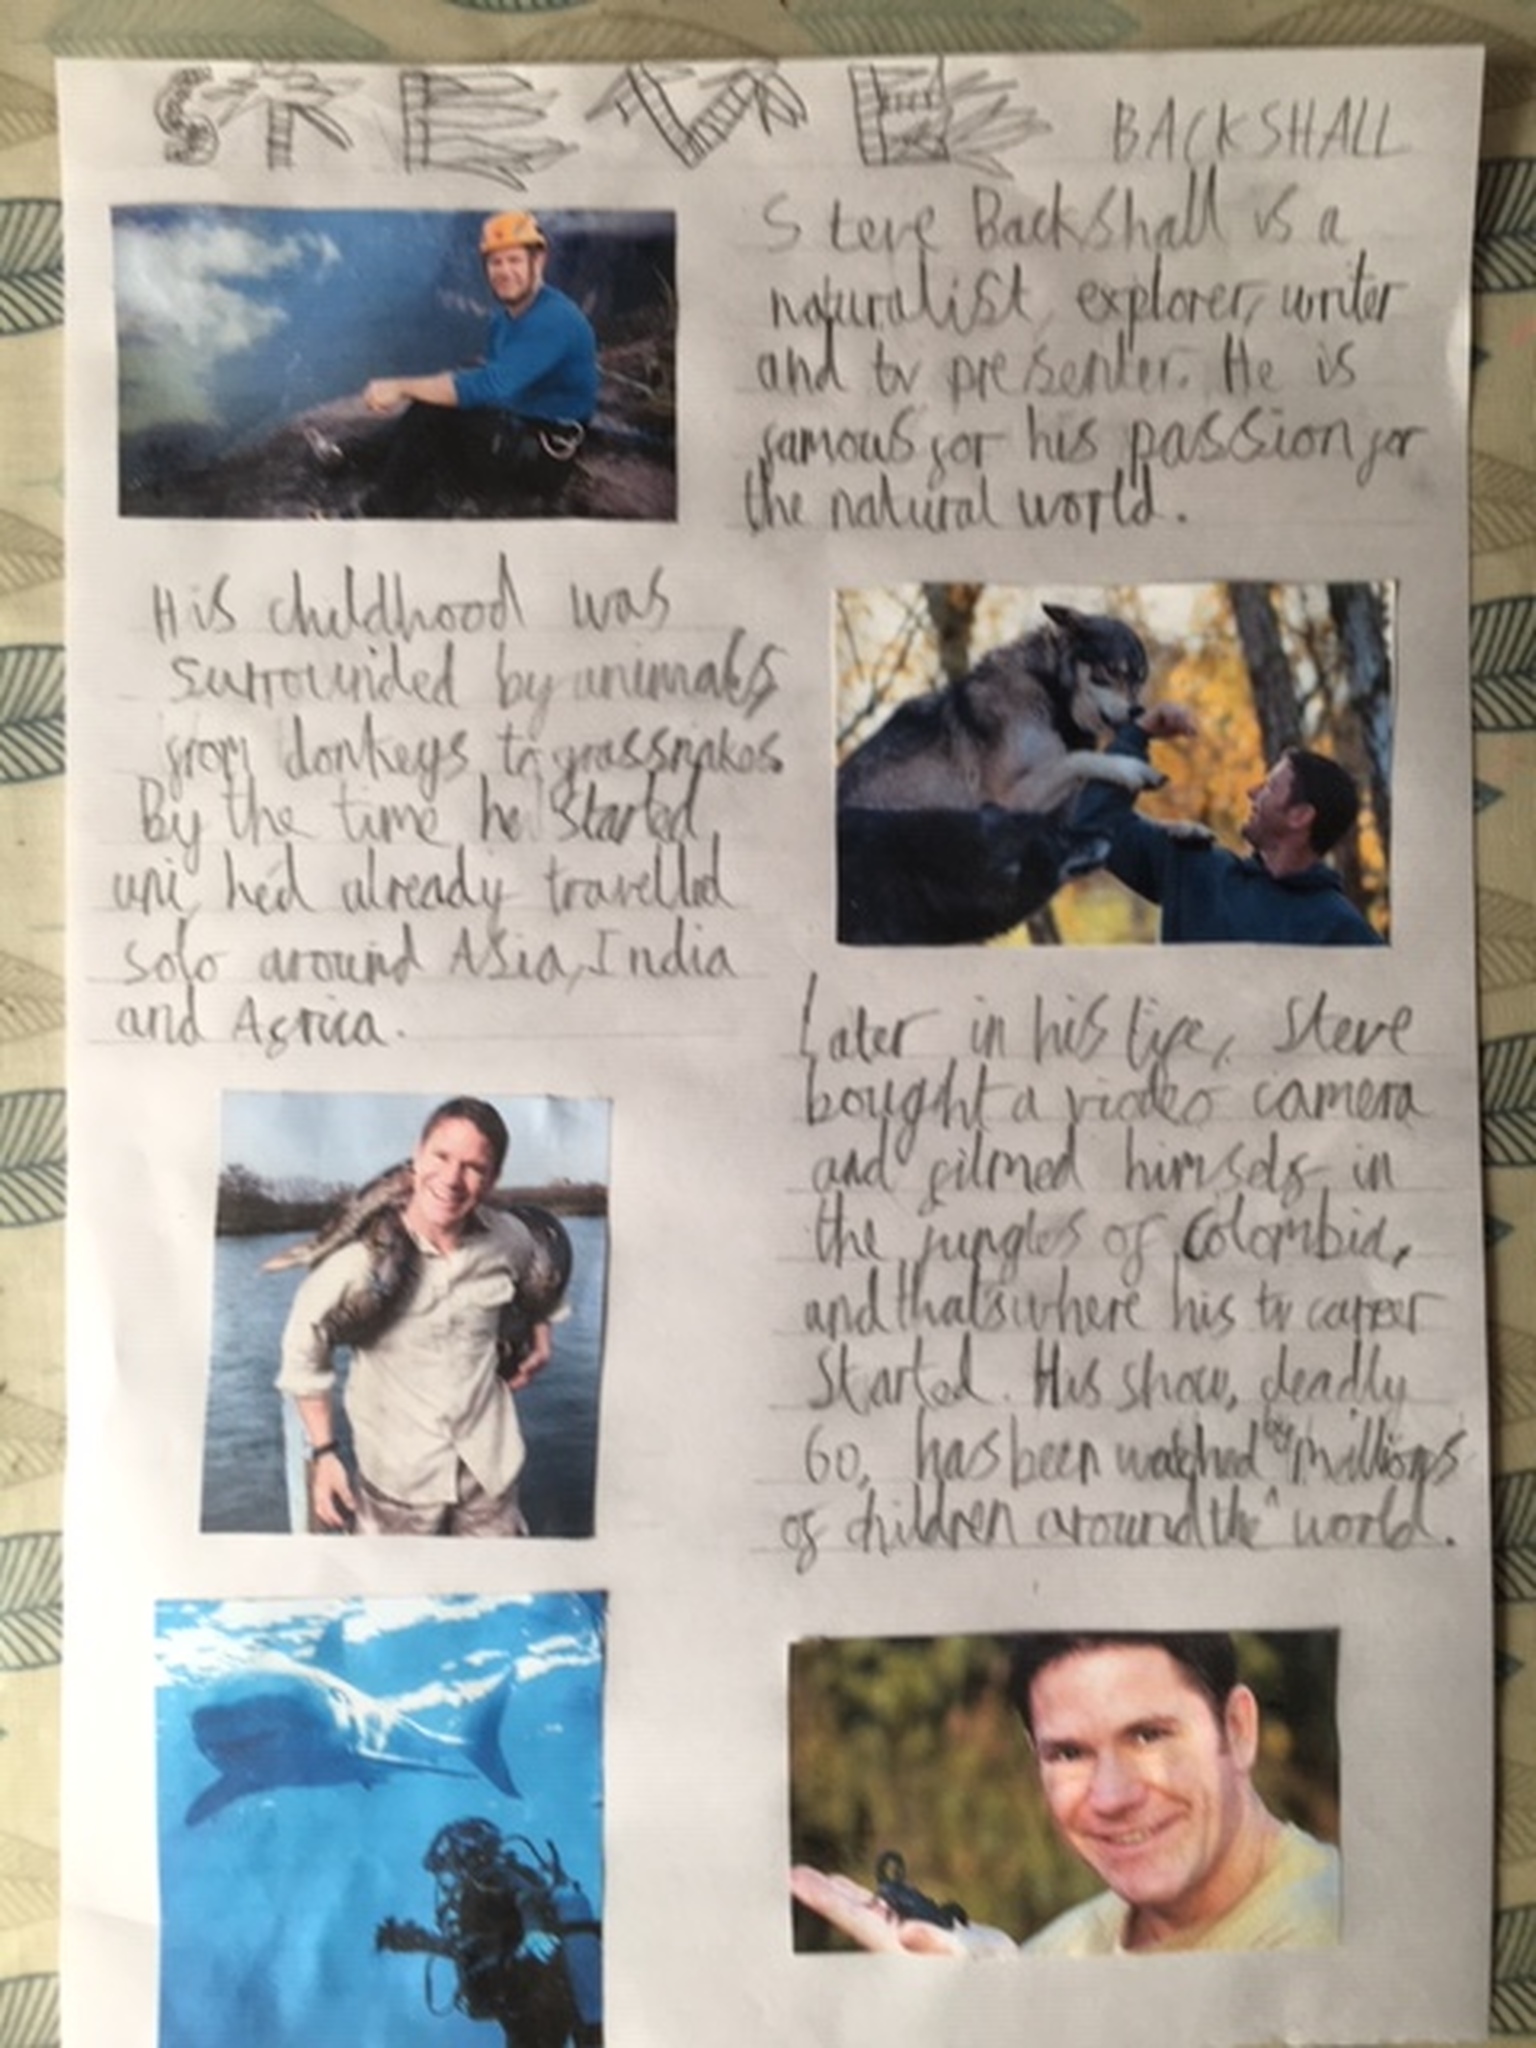 STEVE BACKSHALL
Steve Backshall is a
naturalist, explorer, writer
and tv presenter. He is
famous for his passion for
the natural world.
His childhood was
surrounded by animals,
from donkeys to grassnakes.
By the time he started
uni, he'd already travelled
solo around Asia, India
and Africa.
Later in his life, Steve
bought a video camera
and filmed himself in
the jungles of Colombia,
and that's where his tv career
started. His show, deadly
60, has been watched by millions
of children around the world.